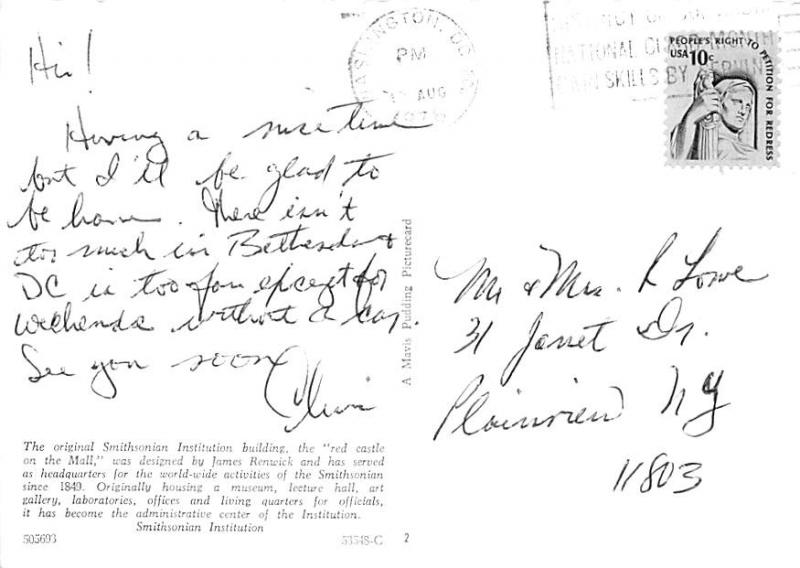 Hi!
Having a nice time
but I'll be glad to
be home. There isn't
too much in Bethesda &
DC is too far except for
weekends without a car.
See you soon
WASHINGTON, DC
PM
AUG
NATIONAL MONTH
SKILLS BY
PEOPLE'S RIGHT TO PETITION FOR REDRESS
USA 10c
A Mavis Pudding Picturecard
Mr & Mrs. R Lowe
31 Janet Dr.
Plainview NY
11803
The original Smithsonian Institution building, the "red castle
on the Mall," was designed by James Renwick and has served
as headquarters for the world-wide activities of the Smithsonian
since 1849. Originally housing a museum, lecture hall, art
gallery, laboratories, offices and living quarters for officials,
it has become the administrative center of the Institution.
Smithsonian Institution
505693
53548-C
2